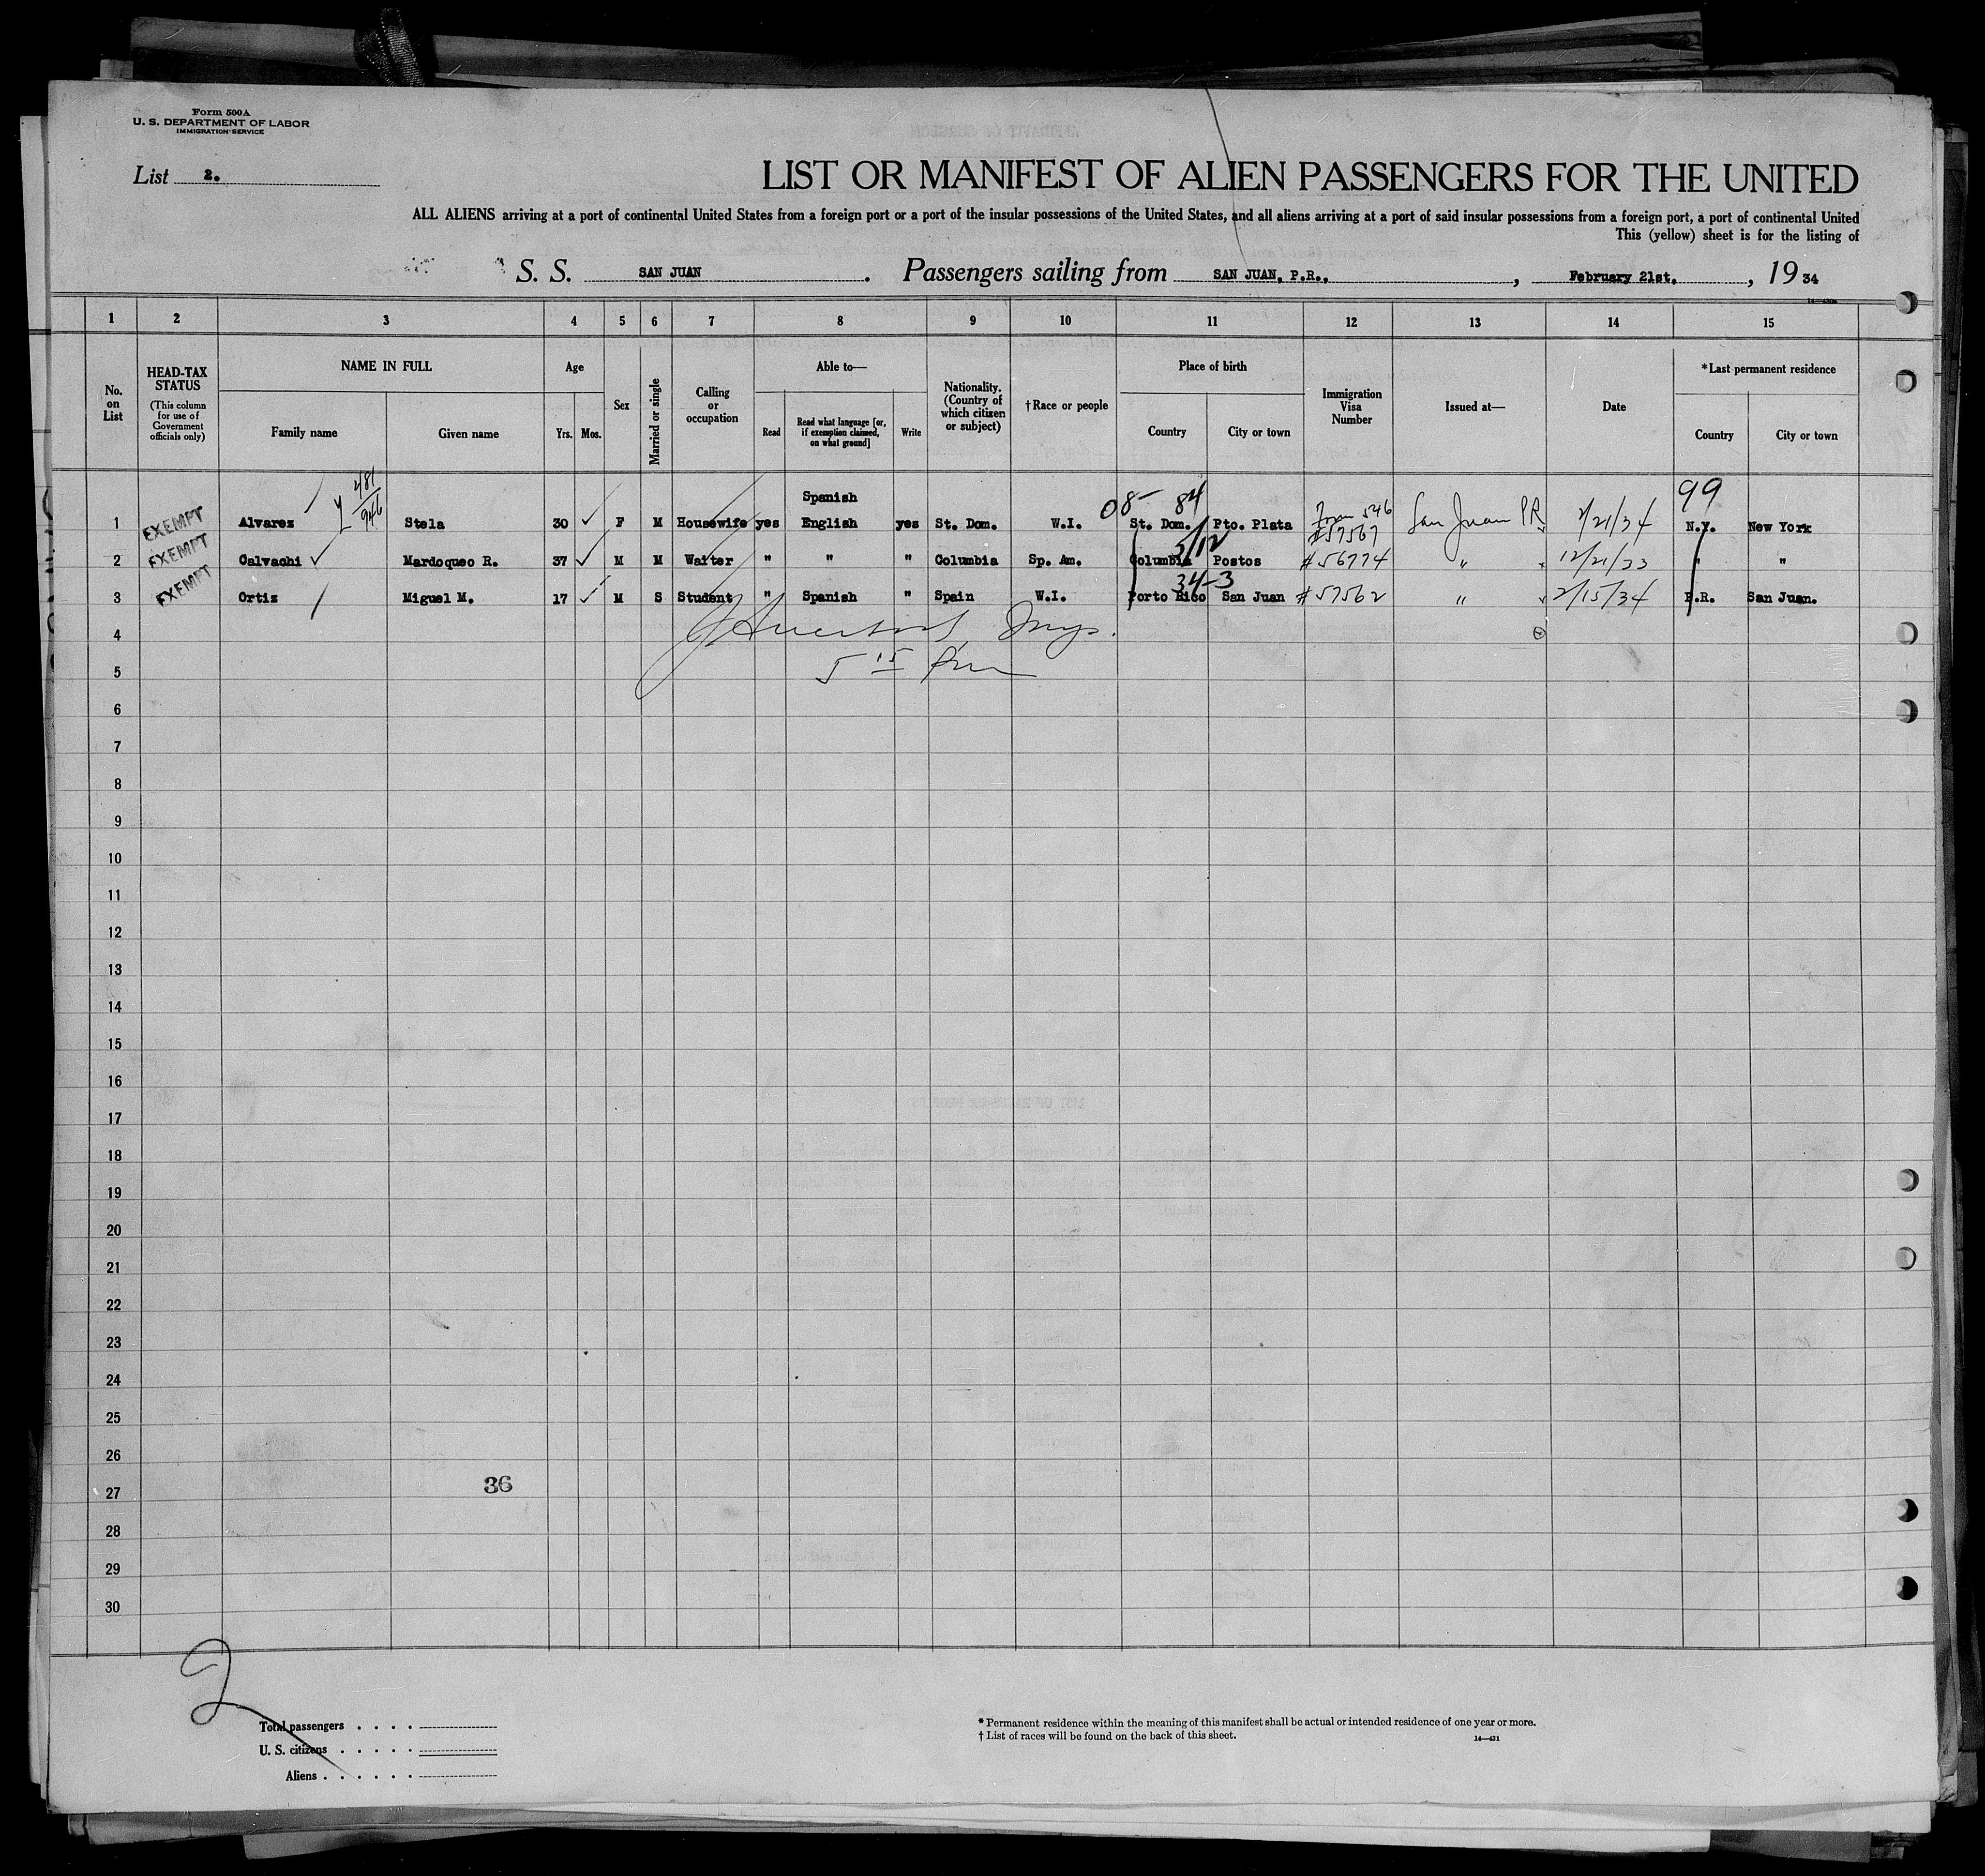 Form 500A
U. S. DEPARTMENT OF LABOR
IMMIGRATION SERVICE
List 2.
LIST OR MANIFEST OF ALIEN PASSENGERS FOR THE UNITED
ALL ALIENS arriving at a port of continental United States from a foreign port or a port of the insular possessions of the United States, and all aliens arriving at a port of said insular possessions from a foreign port, a port of continental United
This (yellow) sheet is for the listing of
S. S. SAN JUAN. Passengers sailing from SAN JUAN, P.R., , February 21st. , 19 34
1 2 3 4 5 6 7 8 9 10 11 12 13 14 15
No. on List
HEAD-TAX STATUS
(This column for use of Government officials only)
NAME IN FULL
Family name
Given name
Age
Yrs. Mos.
Sex
Married or single
Calling or occupation
Able to—
Read
Read what language [or, if exemption claimed, on what ground]
Write
Nationality. (Country of which citizen or subject)
†Race or people
Place of birth
Country
City or town
Immigration Visa Number
Issued at—
Date
*Last permanent residence
Country
City or town
481
946
Spanish
08- 84
Form 546
99
1 EXEMPT Alvarez Stela 30 F M Housewife yes English yes St. Dom. W.I. St. Dom. Pto. Plata #57567 San Juan PR 2/21/34 N.Y. New York
2/12
2 EXEMPT Calvachi Mardoqueo R. 37 M M Waiter " " " Columbia Sp. Am. Columbia Postos #56774 " 12/21/33 " "
34-3
3 EXEMPT Ortiz Miguel M. 17 M S Student " Spanish " Spain W.I. Porto Rico San Juan #57562 " 2/15/34 P.R. San Juan.
4
5 5 15 Pm
6
7
8
9
10
11
12
13
14
15
16
17
18
19
20
21
22
23
24
25
26
36
27
28
29
30
2
Total passengers . . . .
U. S. citizens . . . . .
Aliens . . . . . .
* Permanent residence within the meaning of this manifest shall be actual or intended residence of one year or more.
† List of races will be found on the back of this sheet.
14—431